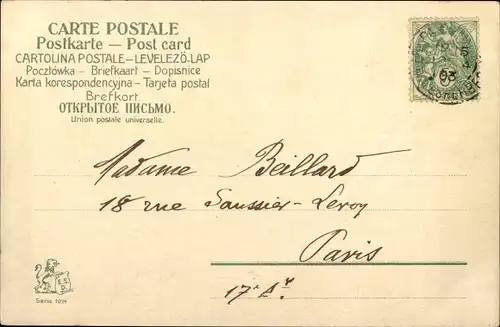 CARTE POSTALE
Postkarte — Post card
CARTOLINA POSTALE – LEVELEZŐ-LAP
Pocztówka – Briefkaart – Dopisnice
Karta korespondencyjna – Tarjeta postal
Brefkort.
ОТКРЫТОЕ ПИСЬМО.
Union postale universelle.
03
Madame Beillard
18 rue Saussier-Leroy
Paris
17e Ar
Serie 1014